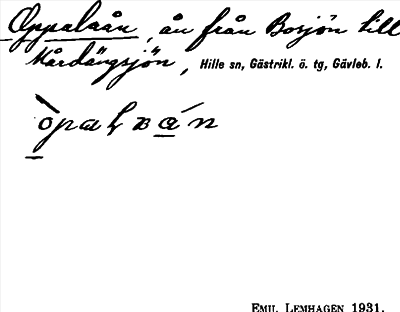 Oppalaån, ån från Borsjön till
Mårdängsjön, Hille sn, Gästrikl. ö. tg, Gävleb. l.
EMIL LEMHAGEN 1931.